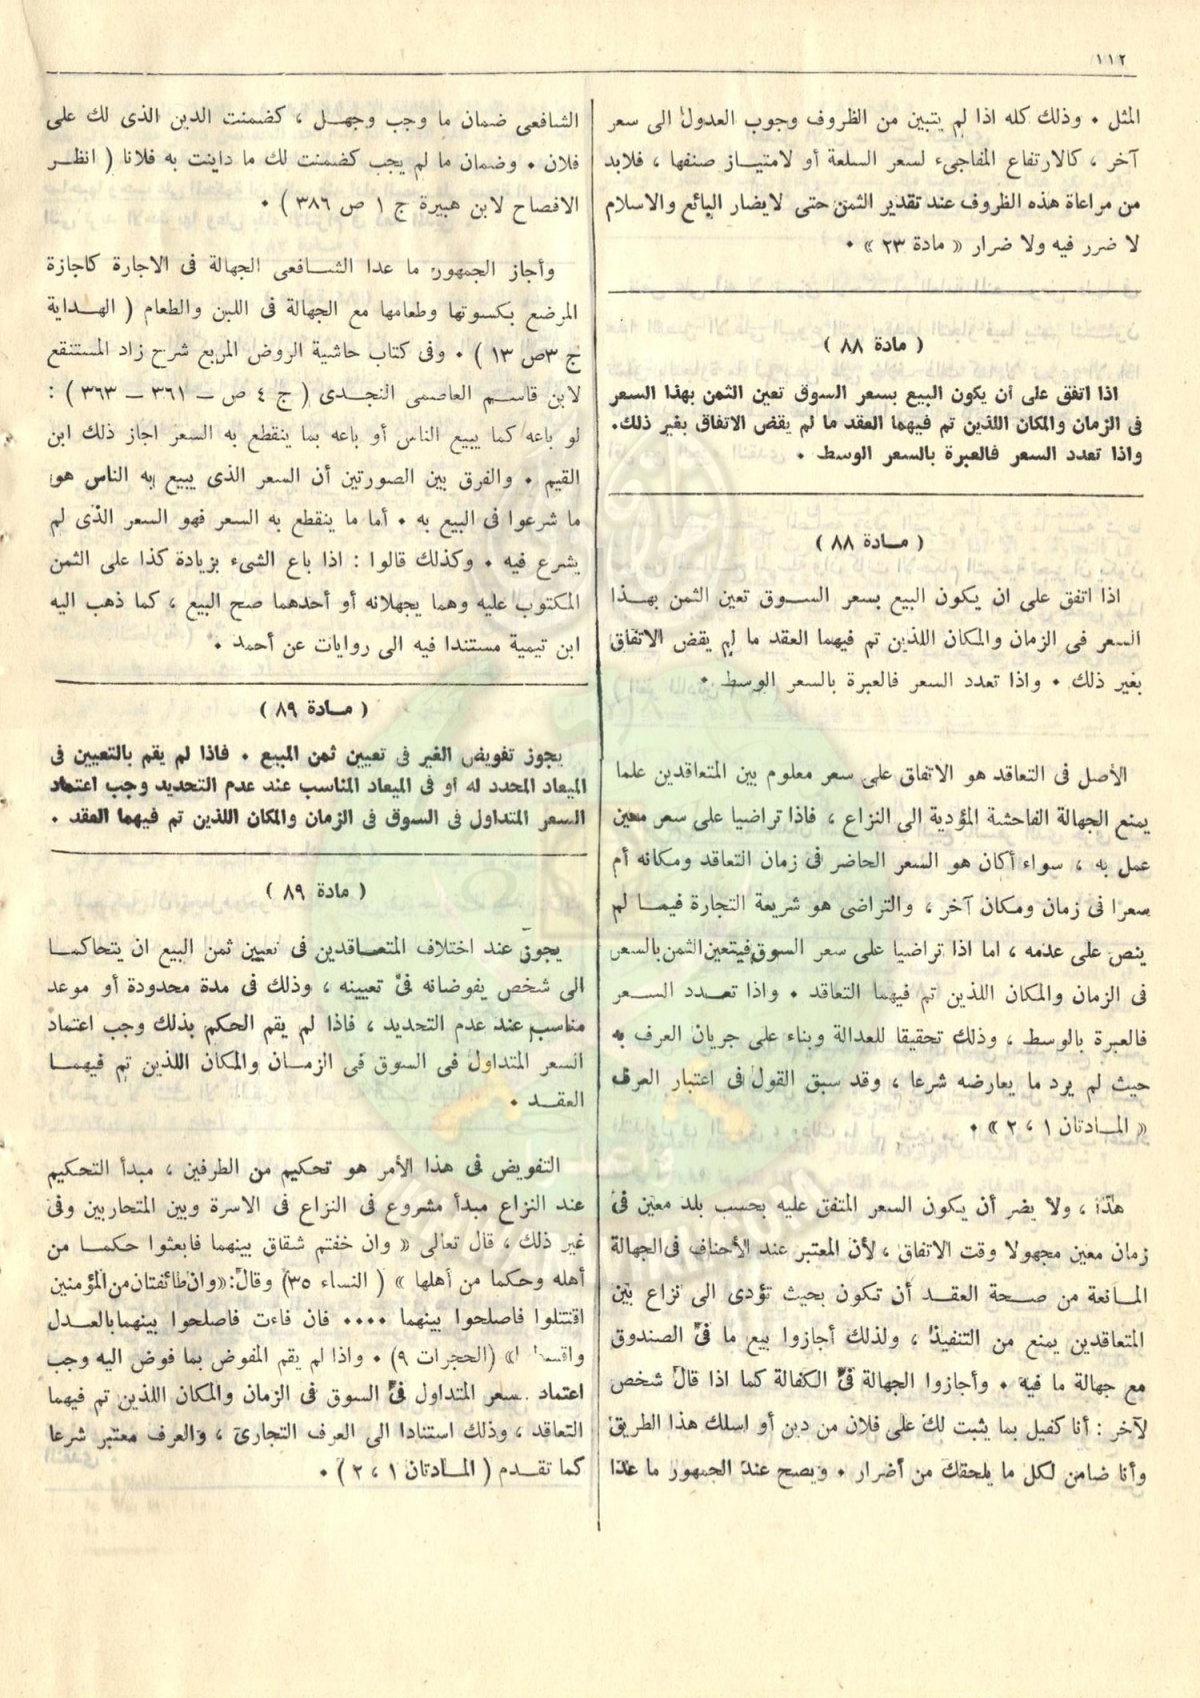 ١١٢
المثل • وذلك كله اذا لم يتبين من الظروف وجوب العدول الى سعر
آخر ، كالارتفاع المفاجىء لسعر السلعة أو لامتيـاز صنفها ، فلابد
من مراعاة هذه الظروف عند تقدير الثمن حتى لايضار البائع والاسلام
لا ضرر فيه ولا ضرار « مادة ٢٣ » •
( مادة ٨٨ )
اذا اتفق على أن يكون البيع بسعر السوق تعين الثمن بهذا السعر
فى الزمان والمكان اللذين تم فيهما العقد ما لم يقض الاتفاق بغير ذلك.
واذا تعدد السعر فالعبرة بالسعر الوسط •
( مـادة ٨٨ )
اذا اتفق على ان يكون البيع بسعر السـوق تعين الثمن بهـذا
السعر فى الزمان والمكان اللذين تم فيهما العقد ما لم يقض الاتفاق
بغير ذلك • واذا تعدد السعر فالعبرة بالسعر الوسط •
الأصل فى التعاقد هو الاتفاق على سعر معلوم بين المتعاقدين علما
يمنع الجهالة الفاحشة المؤدية الى النزاع ، فاذا تراضيا على سعر معين
عمل به ، سواء أكان هو السعر الحاضر فى زمان التعاقد ومكانه أم
سعرا فى زمان ومكان آخر ، والتراضى هو شريعة التجارة فيمـا لم
ينص على عدمه ، اما اذا تراضيا على سعر السوق فيتعين الثمن بالسعر
فى الزمان والمكان اللذين تم فيهما التعاقد • واذا تعـدد السـعر
فالعبرة بالوسط ، وذلك تحقيقا للعدالة وبناء على جريان العرف به
حيث لم يرد ما يعارضه شرعا ، وقد سبق القول فى اعتبار العرف
« المـادتان ١ ، ٢ » •
هذا ، ولا يضر أن يكون السعر المتفق عليه بحسب بلد معين فى
زمان معين مجهولا وقت الاتفاق ، لأن المعتبر عند الأحناف فى الجهالة
المـانعة من صـحة العقـد أن تكون بحيث تؤدى الى نزاع بين
المتعاقدين يمنع من التنفيذ ، ولذلك أجازوا بيع ما فى الصندوق
مع جهالة ما فيه • وأجازوا الجهالة فى الكفالة كما اذا قال شخص
لآخر : أنا كفيل بما يثبت لك على فلان من دين أو اسلك هذا الطريق
وأنا ضامن لكل ما يلحقك من أضرار • ويصح عند الجمهور ما عدا
الشافعى ضمان ما وجب وجهـل ، كضمنت الدين الذى لك على
فلان • وضمان ما لم يجب كضمنت لك ما داينت به فلانا ( انظـر
الافصاح لابن هبيرة ج ١ ص ٣٨٦ ) •
وأجاز الجمهور ما عدا الشـافعى الجهالة فى الاجارة كاجازة
المرضع بكسوتها وطعامها مع الجهالة فى اللبن والطعام ( الهـداية
ج ٣ص ١٣ ) • وفى كتاب حاشية الروض المربع شرح زاد المستنقع
لابن قاسـم العاصمى النجـدى ( ج ٤ ص ــ ٣٦١ ــ ٣٦٣ ) :
لو باعه كما يبيع الناس أو باعه بما ينقطع به السعر اجاز ذلك ابن
القيم • والفرق بين الصورتين أن السعر الذى يبيع به الناس هو
ما شرعوا فى البيع به • أما ما ينقطع به السعر فهو السعر الذى لم
يشرع فيه • وكذلك قالوا : اذا باع الشىء بزيادة كذا على الثمن
المكتوب عليه وهما يجهلانه أو أحدهما صح البيع ، كما ذهب اليه
ابن تيمية مستندا فيه الى روايات عن أحمد •
( مـادة ٨٩ )
يجوز تفويض الغير فى تعيين ثمن المبيع • فاذا لم يقم بالتعيين فى
الميعاد المحدد له أو فى الميعاد المناسب عند عدم التحديد وجب اعتماد
السعر المتداول فى السوق فى الزمان والمكان اللذين تم فيهما العقد •
( مادة ٨٩ )
يجوز عند اختلاف المتعـاقدين فى تعيين ثمن البيع ان يتحاكمـا
الى شخص يفوضانه فى تعيينه ، وذلك فى مدة محدودة أو موعد
مناسب عند عدم التحديد ، فاذا لم يقم الحكم بذلك وجب اعتماد
السعر المتداول فى السوق فى الزمـان والمكان اللذين تم فيهمـا
العقـد •
التفويض فى هذا الأمر هو تحكيم من الطرفين ، مبدأ التحكيم
عند النزاع مبدأ مشروع فى النزاع فى الاسرة وبين المتحاربين وفى
غير ذلك ، قال تعالى « وان خفتم شقاق بينهما فابعثوا حكمـا من
أهله وحكما من أهلها » ( النساء ٣٥) وقال: «وان طائفتان من المؤمنين
اقتتلوا فاصلحوا بينهما •••• فان فاءت فاصلحوا بينهما بالعـدل
» (الحجرات ٩) • واذا لم يقم المفوض بما فوض اليه وجب
اعتماد سعر المتداول فى السوق فى الزمان والمكان اللذين تم فيهما
التعاقد ، وذلك استنادا الى العرف التجارى ، والعرف معتبر شرعا
كما تقـدم ( المـادتان ١ ، ٢ ) •